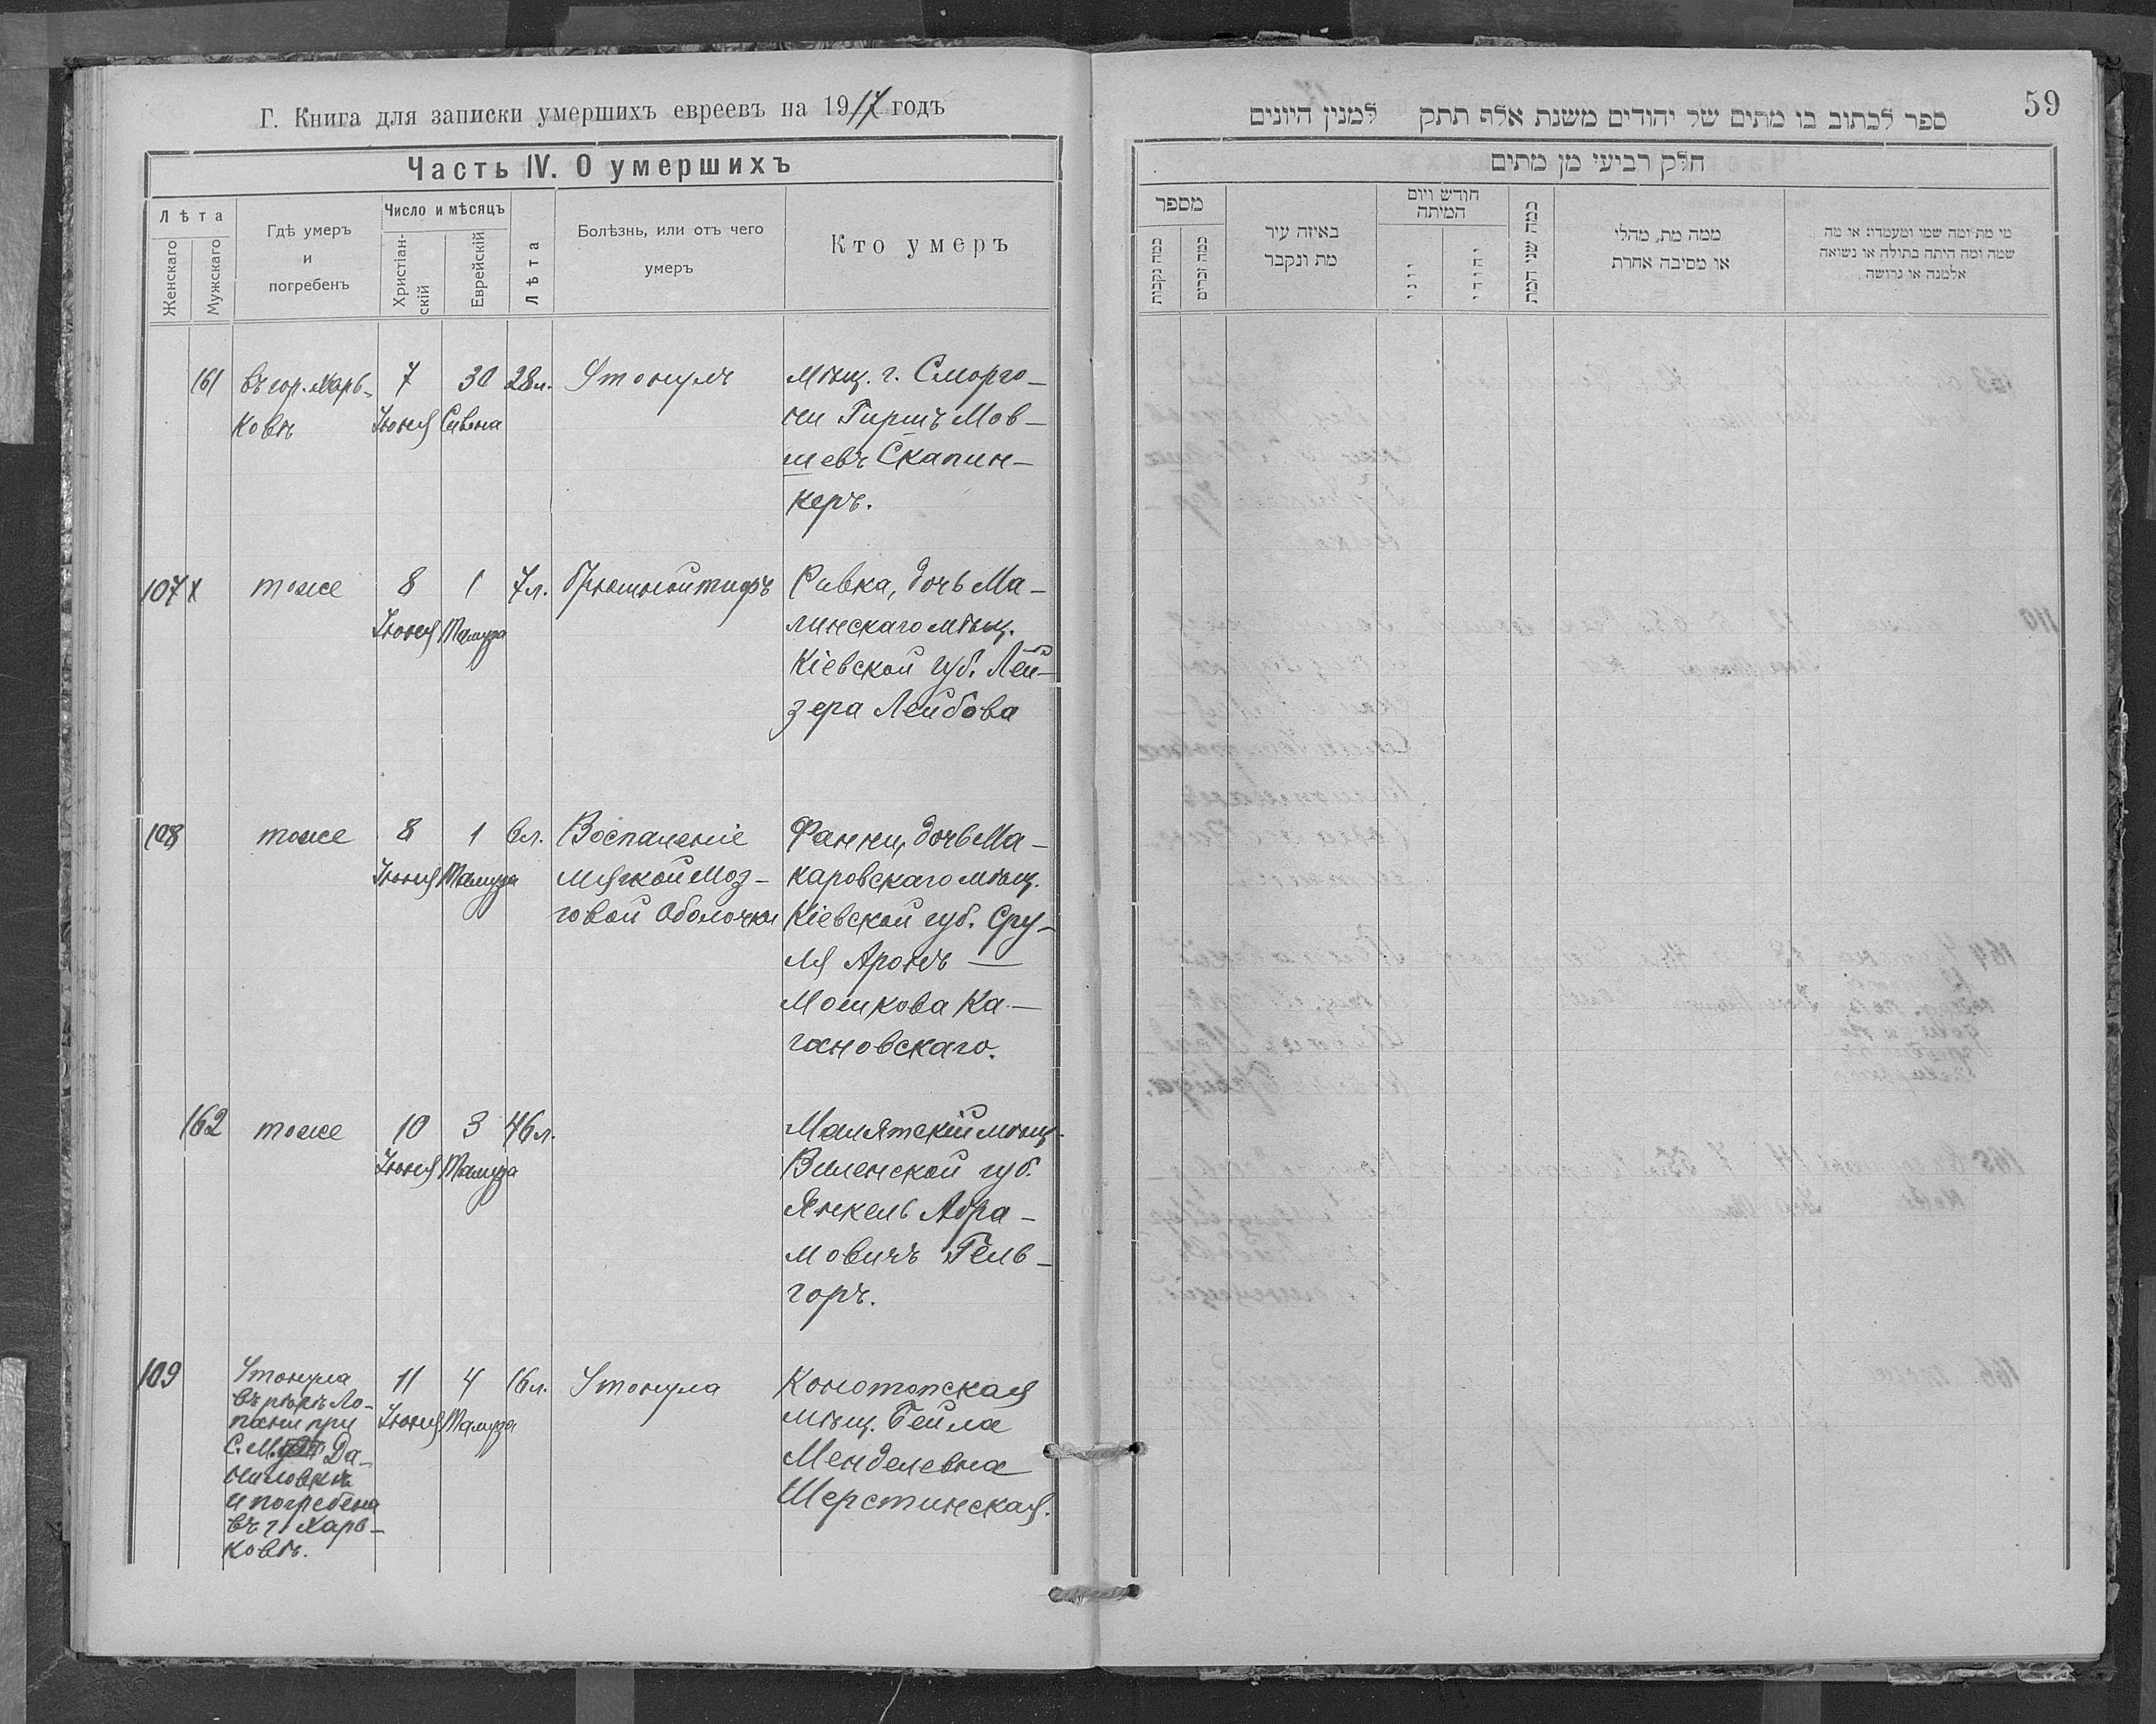 Г. Книга для записки умершихъ евреевъ на 1917 годъ
Часть IV. О умершихъ
Лѣта
Женскаго
Мужскаго
Гдѣ умеръ
и
погребенъ
Число и мѣсяцъ
Христіан-
скій
Еврейскій
Лѣта
Болѣзнь, или отъ чего
умеръ
Кто умеръ
161
въ гор. Харь-
ковѣ
7
Іюня
30
Сивона
28 л.
Утонулъ
Мѣщ. г. Сморго-
ни Гиршъ Мов-
шевъ Скапин-
керъ.
107 х
тоже
8
Іюня
1
Тамуза
7 л.
брюшной тифъ
Ривка, дочь Ма-
линскаго мѣщ.
Кіевской губ. Лей-
зера Лейбова
108
тоже
8
Іюня
1
Тамуза
6 л.
Воспаленіе
мягкой Моз-
говой Оболочки
Фанни, дочь Ма-
каровскаго мѣщ.
Кіевской губ. Сру-
ля Аронъ —
Мошкова Ка-
гановскаго.
162
тоже
10
Іюня
3
Тамуза
46 л.
Малятскій мѣщ.
Виленской губ.
Янкель Абра-
мовичъ Гель-
горъ.
109
Утонула
въ рѣкѣ Ло-
пани при
С. М. Да-
ниловкѣ
и погребена
въ г. Харь-
ковѣ.
11
Іюня
4
Тамуза
16 л.
Утонула
Конотопская
мѣщ. Бейла
Менделевна
Шерстинская.
59
ספר לכתוב בו מתים של יהודים משנת אלף תתק למנין היונים
חלק רביעי מן מתים
מספר
כמה נקבות
כמה זכרים
באיזה עיר
מת ונקבר
חודש ויום
המיתה
יוני
יהודי
כמה שני המת
ממה מת, מחלי
או מסיבה אחרת
מי מת ומה שמו ומעמדו: או מה
שמה ומה היתה בתולה או נשואה
אלמנה או גרושה